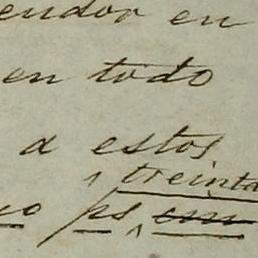 endor en
en todo
a estos
treinta
co ps em